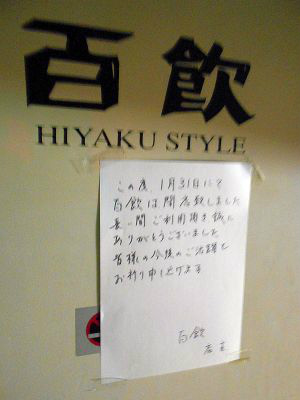 百飲
HIYAKU STYLE
この度 1月31日にて
百飲は閉店致しました
長い間ご利用頂き誠に
ありがとうございました
皆様の今後のご活躍を
お祈り申し上げます
百飲
店主